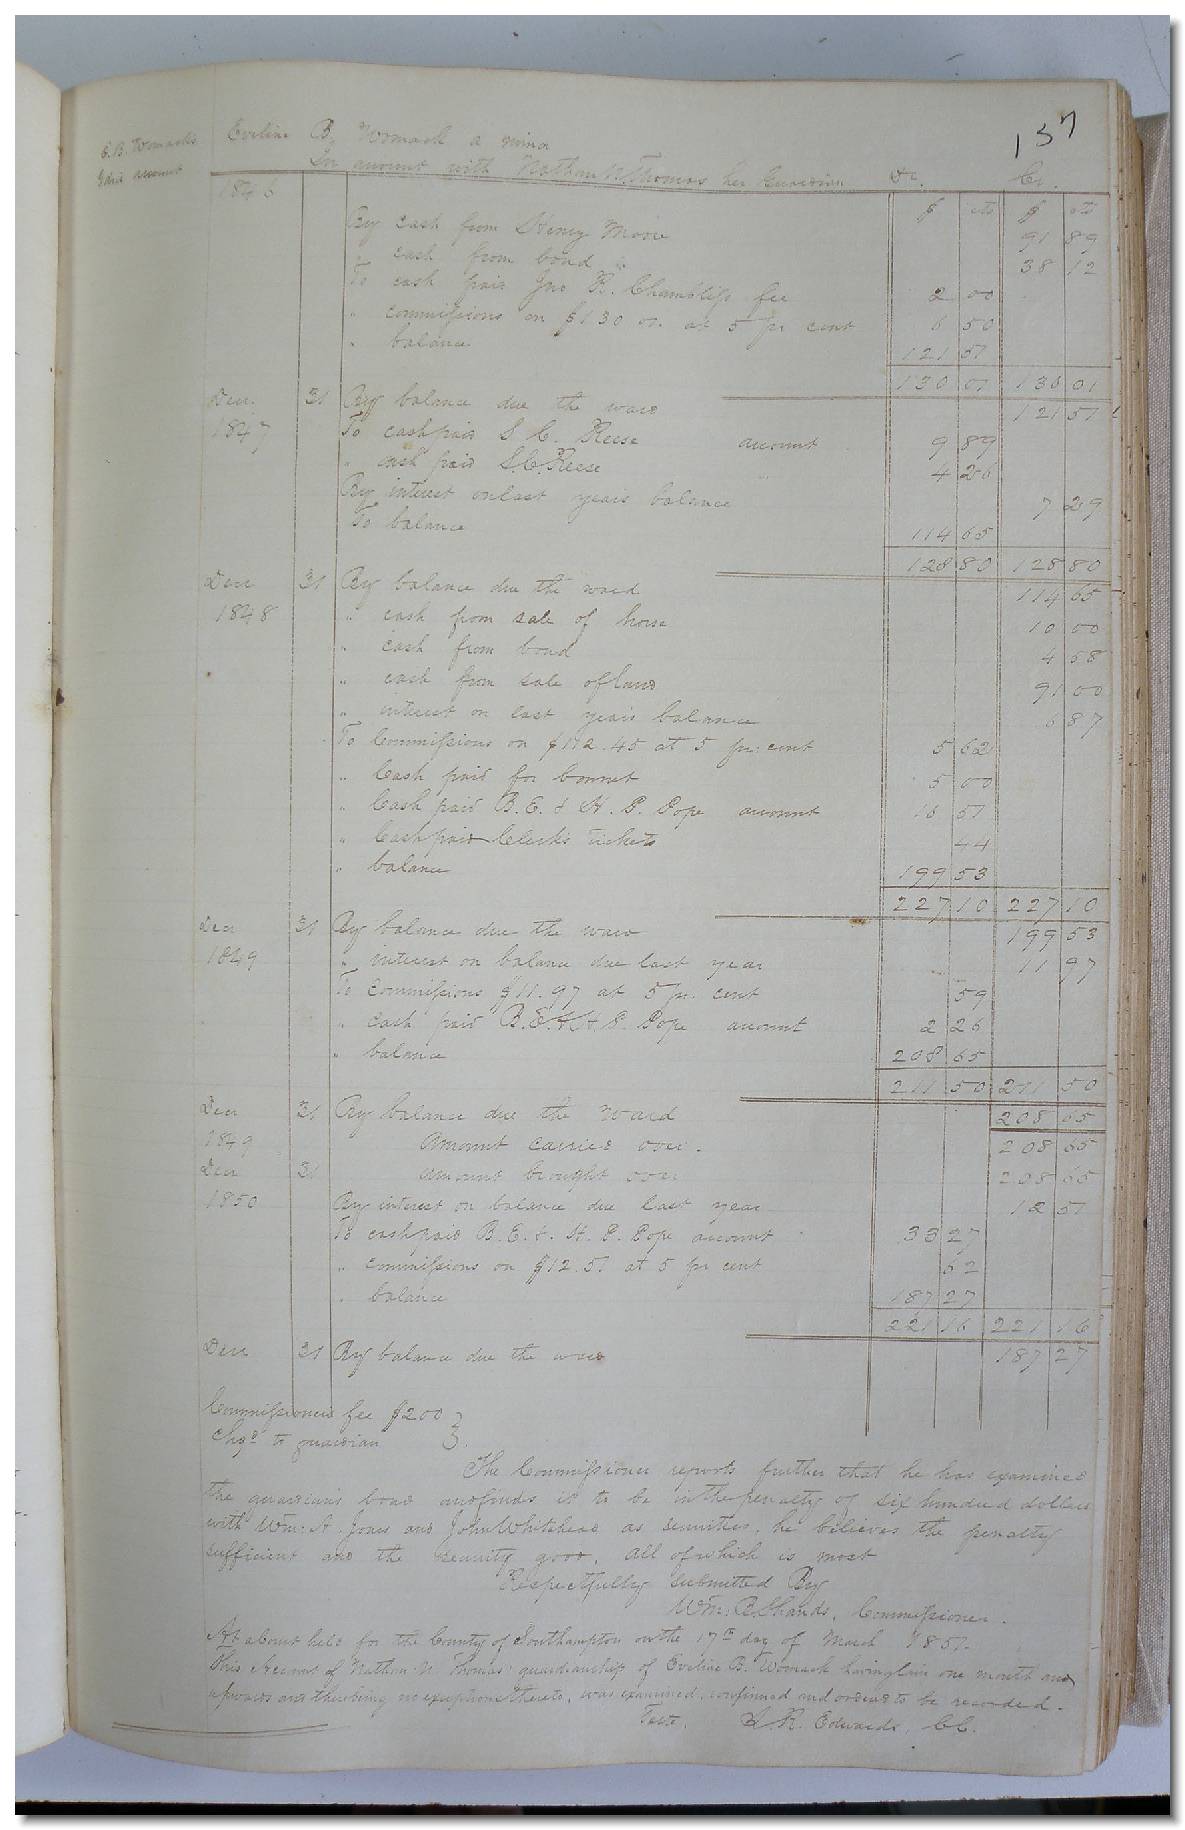 157
E. B. Womack's
Gdn's account
Eveline B. Womack a minor
In account with Nathan N. Thomas her Guardian Dr. Cr.
1846 $ cts $ cts
By cash from Henry Moore 91 89
" cash from bond 38 12
To cash paid Jno R. Chambliss fee 2 00
" commissions on $130 01 at 5 pr cent 6 50
" balance 121 51
130 01 130 01
Dec. 31 By balance due the ward 121 51
1847 To cash paid S. C. Reese account 9 89
" cash paid S. C. Reese " 4 26
By interest on last years balance 7 29
To balance 114 65
128 80 128 80
Dec 31 By balance due the ward 114 65
1848 " cash from sale of horse 10 00
" cash from bond 4 58
" cash from sale of land 91 00
" interest on last years balance 6 87
To Commissions on $112.45 at 5 pr. cent 5 62
" Cash paid for bonnet 5 00
" Cash paid B. E. & H. P. Pope account 16 51
" Cash paid Clerk's tickets 44
" balance 199 53
227 10 227 10
Dec 31 By balance due the ward 199 53
1849 " interest on balance due last year 11 97
To Commissions $11.97 at 5 pr. cent 59
" cash paid B. E. & H. P. Pope account 2 26
" balance 208 65
211 50 211 50
Dec 31 By balance due the ward 208 65
1849 Amount carried over. 208 65
Dec 31 Amount brought over 208 65
1850 By interest on balance due last year 12 51
To cash paid B. E. & H. P. Pope account 33 27
" commissions on $12.51 at 5 pr cent 62
" balance 187 27
221 16 221 16
Dec 31 By balance due the ward 187 27
Commissioners fee $2.00 }
Chgd to guardian }
The Commissioner reports further that he has examined
the guardian's bond and finds it to be in the penalty of six hundred dollars
with Wm. A. Jones and John Whitehead as securities, he believes the penalty
sufficient and the security good. All of which is most
Respectfully submitted By
Wm. B. Shands, Commissioner.
At a Court held for the County of Southampton on the 17th day of March 1851.
This Account of Nathan N. Thomas' guardianship of Eveline B. Womack having lain one month and
upwards and there being no exceptions thereto, was examined, confirmed and ordered to be recorded.
Teste, L. R. Edwards, CC.